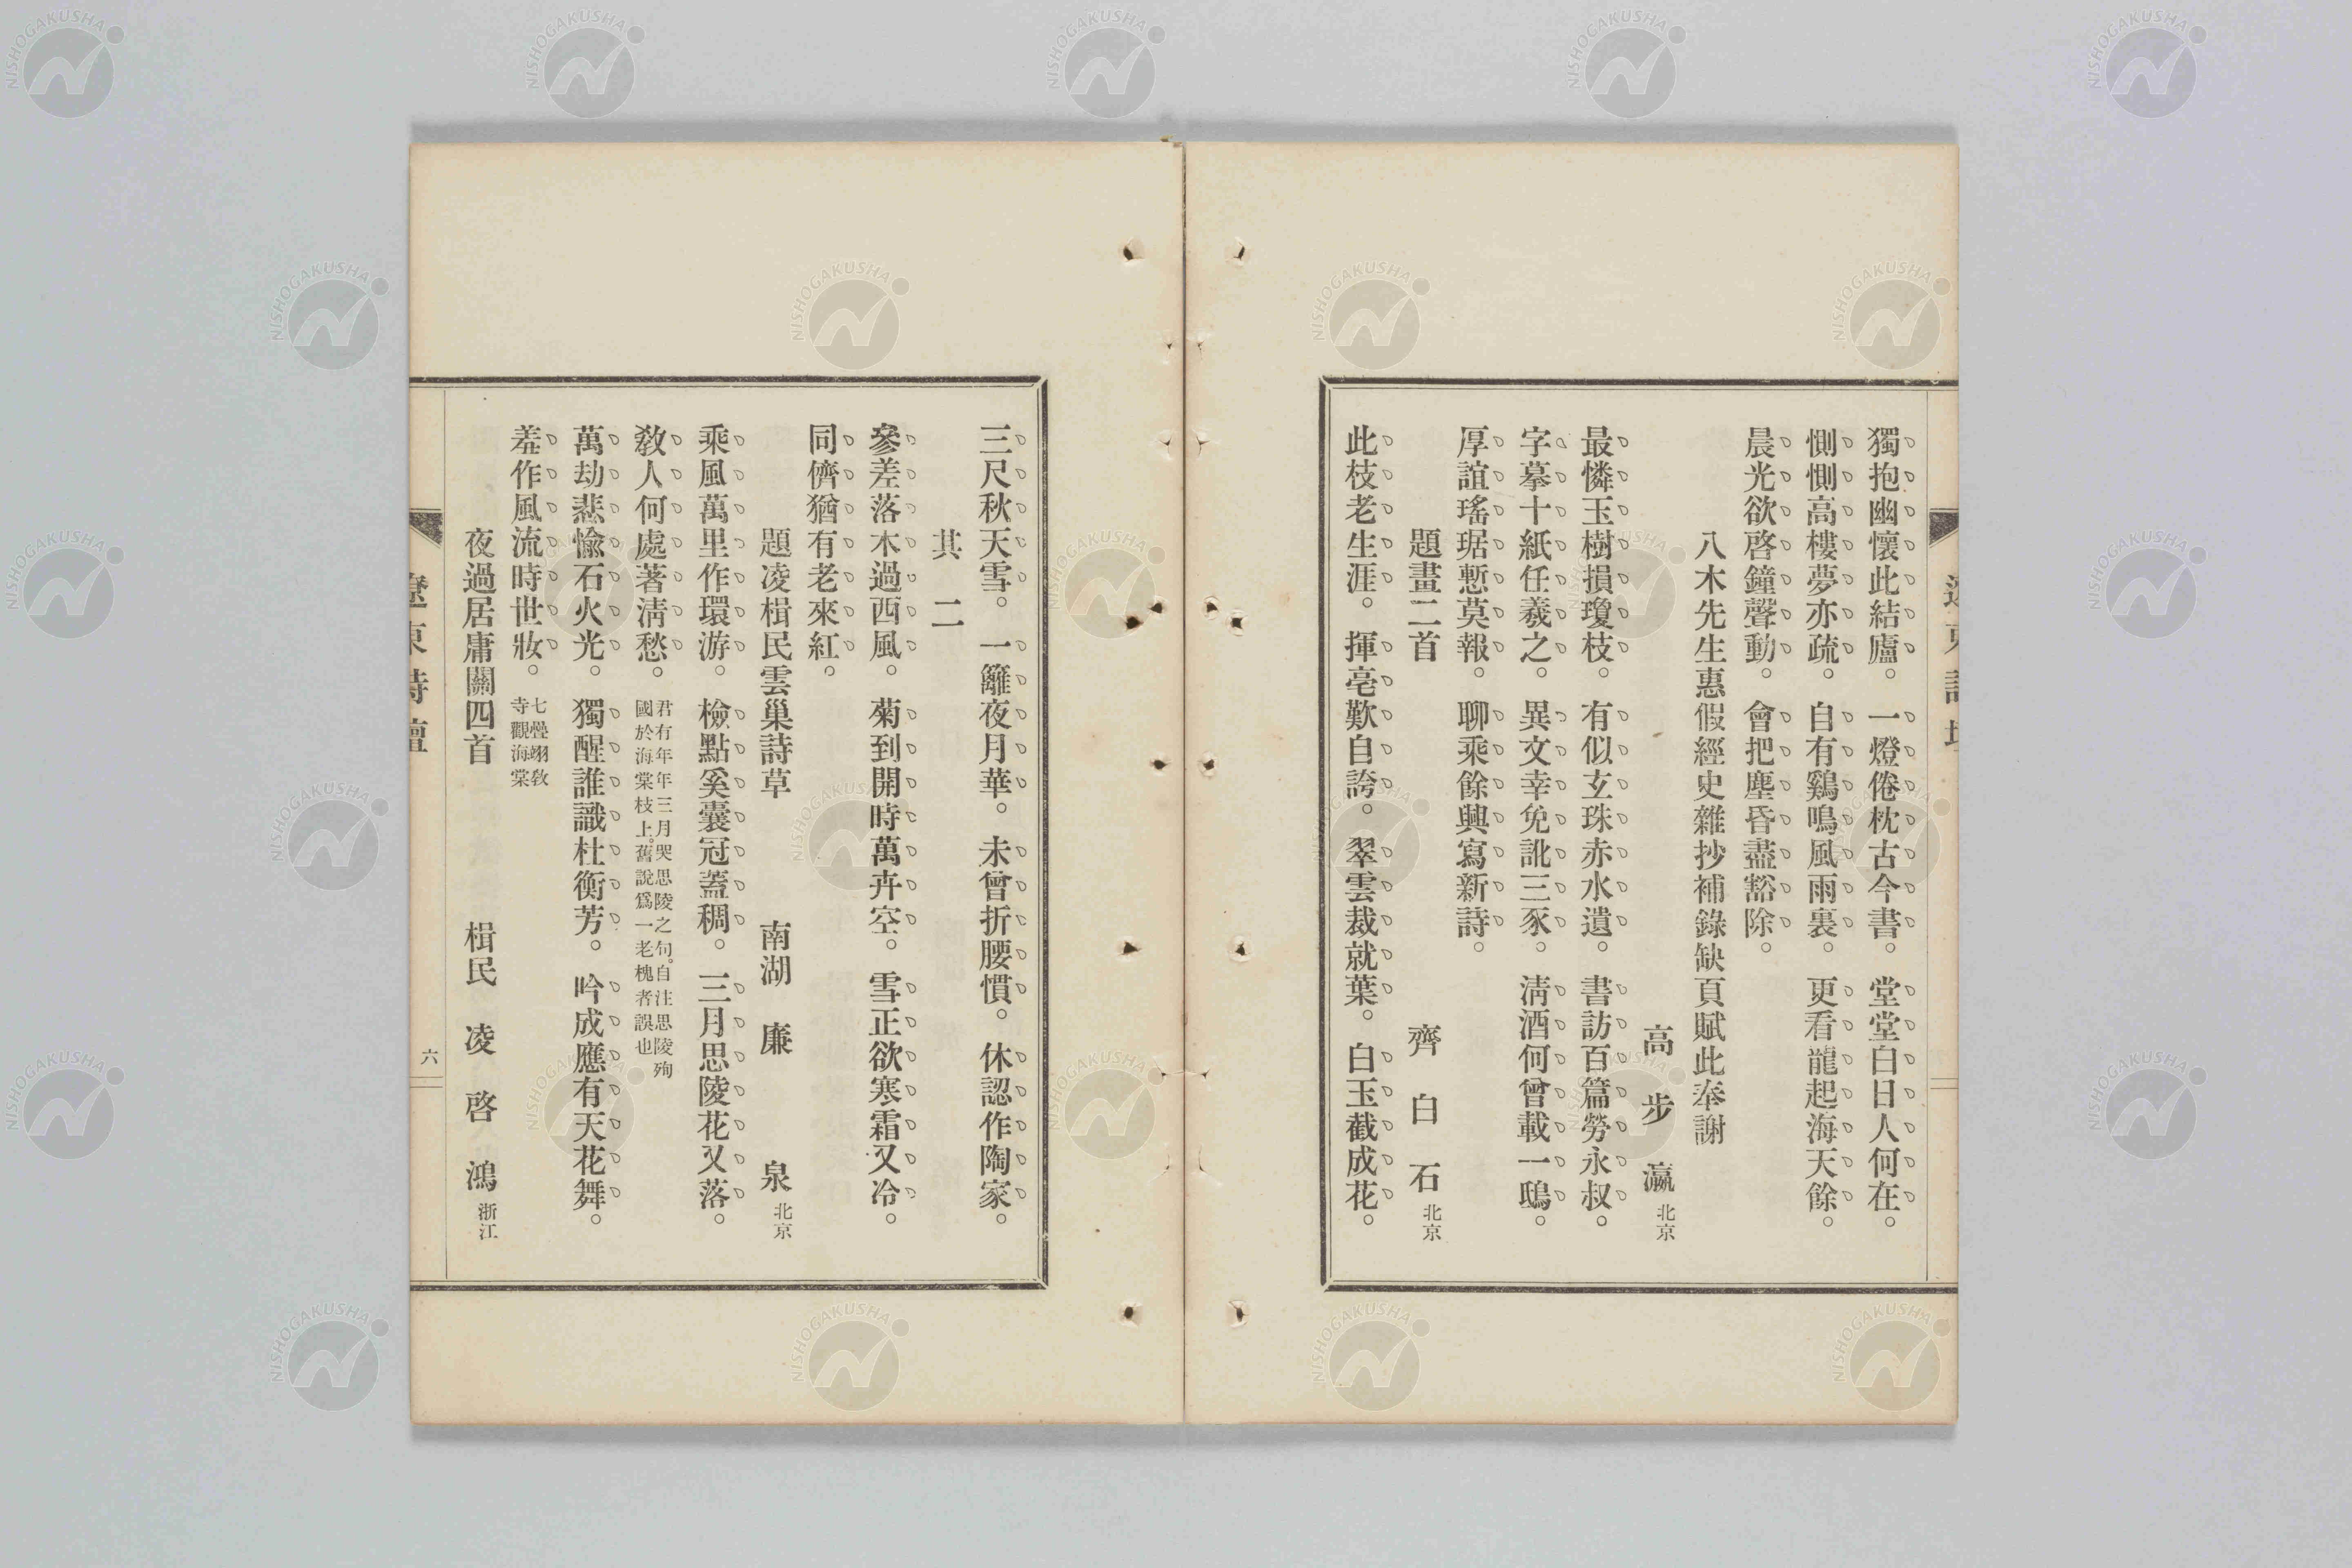 獨抱幽懷此結廬。一燈倦枕古今書。堂堂白日人何在。
惻惻高樓夢亦疏。自有鷄鳴風雨裏。更看龍起海天餘。
晨光欲啓鐘聲動。會把塵昏盡豁除。
八木先生惠假經史雜抄補錄缺頁賦此奉謝
高步瀛 北京
最憐玉樹損瓊枝。有似玄珠赤水遺。書訪百篇勞永叔。
字摹十紙任羲之。異文幸免訛三豕。淸酒何曾載一鴟。
厚誼瑤琚慙莫報。聊乘餘興寫新詩。
題畫二首 齊白石 北京
此枝老生涯。揮亳歎自誇。翠雲裁就葉。白玉截成花。
三尺秋天雪。一籬夜月華。未曾折腰慣。休認作陶家。
其二
參差落木過西風。菊到開時萬卉空。雪正欲寒霜又冷。
同儕猶有老來紅。
題凌楫民雲巢詩草 南湖 廉泉 北京
乘風萬里作環游。檢點奚囊冠蓋稠。三月思陵花又落。
敎人何處著淸愁。君有年年三月哭思陵之句。自注思陵殉
國於海棠枝上。舊說爲一老槐者誤也
萬劫悲愉石火光。獨醒誰識杜衡芳。吟成應有天花舞。
羞作風流時世妝。七疊翊敎
寺觀海棠
夜過居庸關四首 楫民 凌啓鴻 浙江
遼東詩壇
六
NISHOGAKUSHA